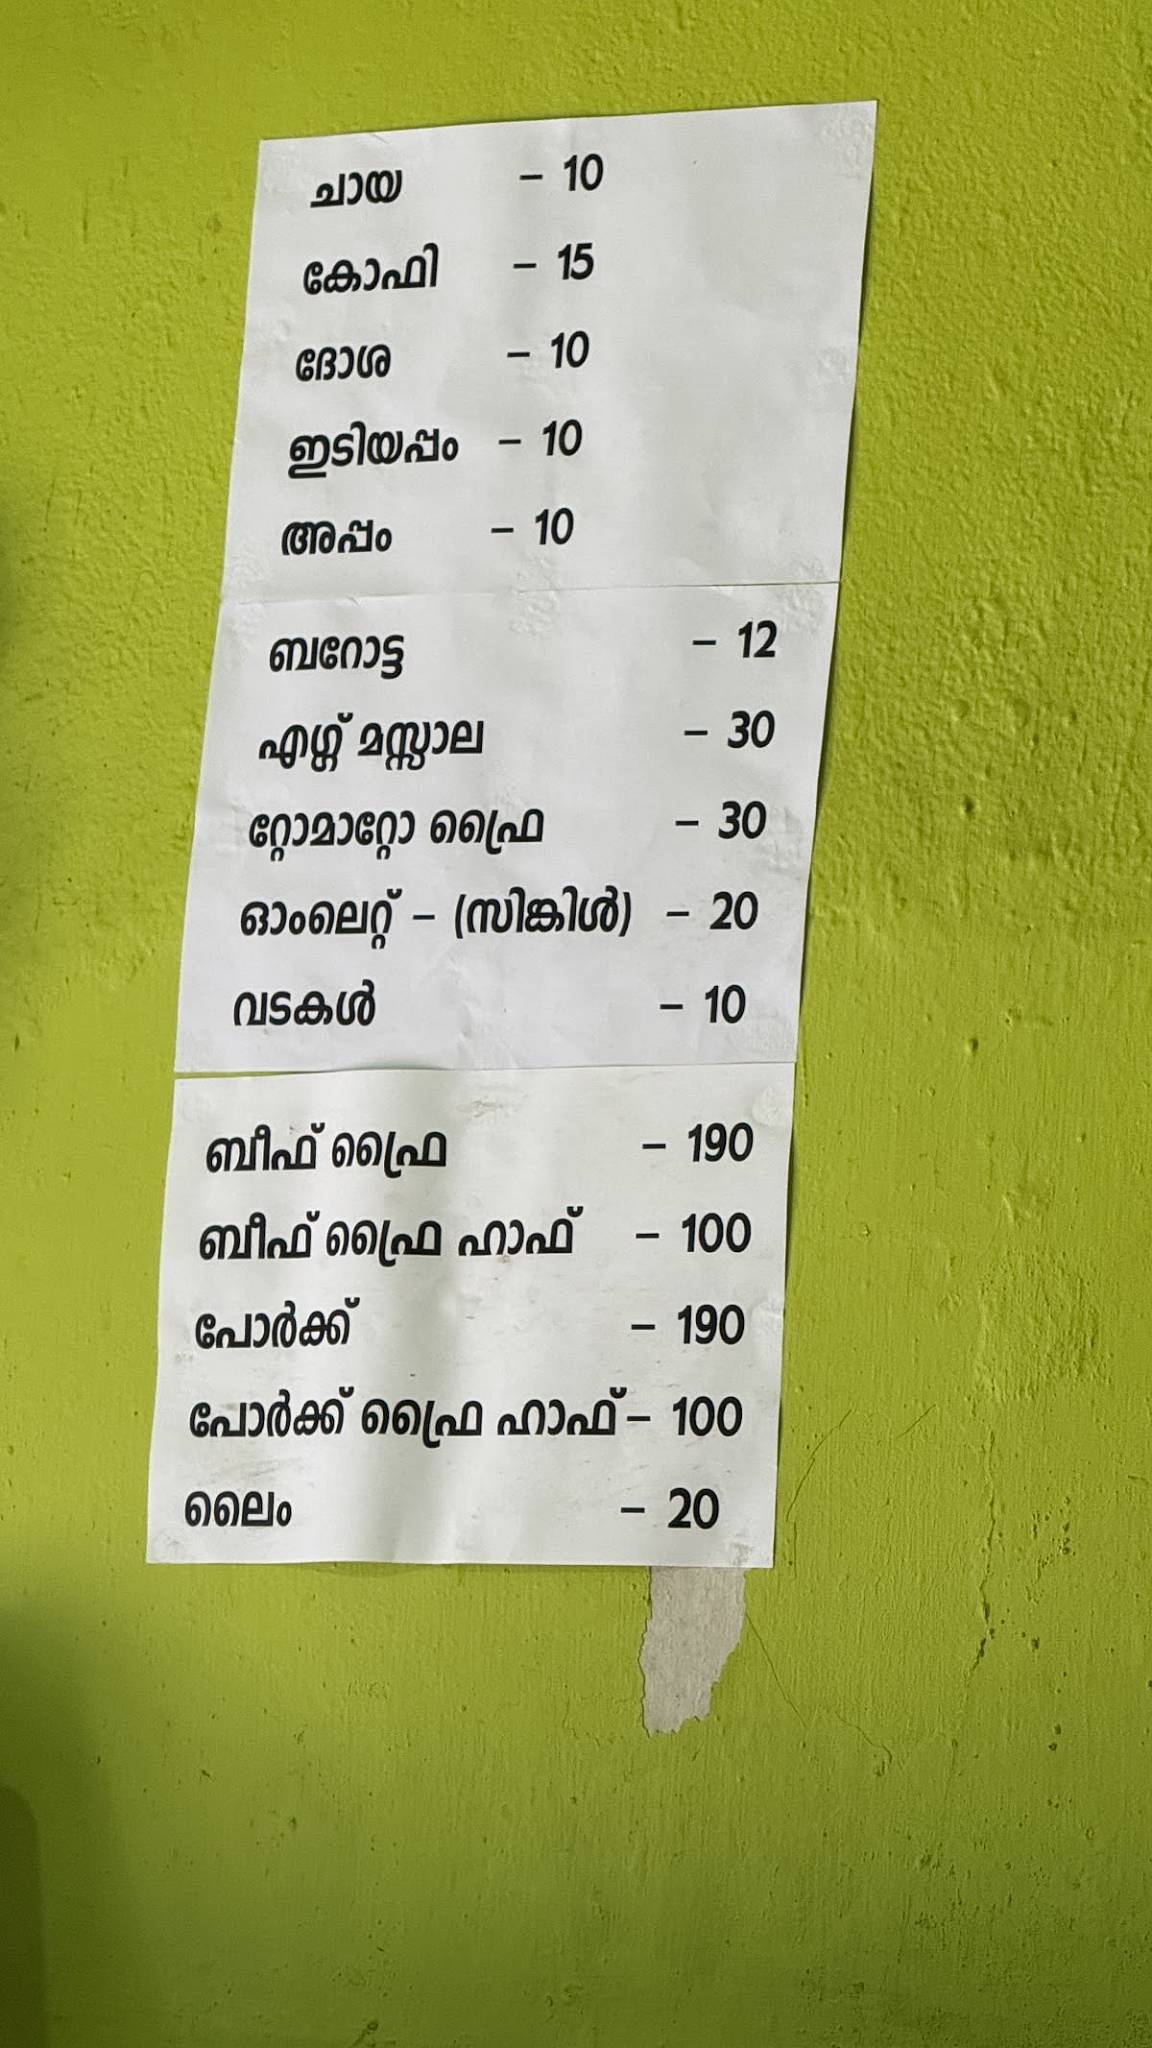 ചായ – 10
കോഫി – 15
ദോശ – 10
ഇടിയപ്പം – 10
അപ്പം – 10
ബറോട്ട – 12
എഗ്ഗ് മസ്സാല – 30
റ്റോമാറ്റോ ഫ്രൈ – 30
ഓംലെറ്റ് – (സിങ്കിൾ) – 20
വടകൾ – 10
ബീഫ് ഫ്രൈ – 190
ബീഫ് ഫ്രൈ ഹാഫ് – 100
പോർക്ക് – 190
പോർക്ക് ഫ്രൈ ഹാഫ് – 100
ലൈം – 20